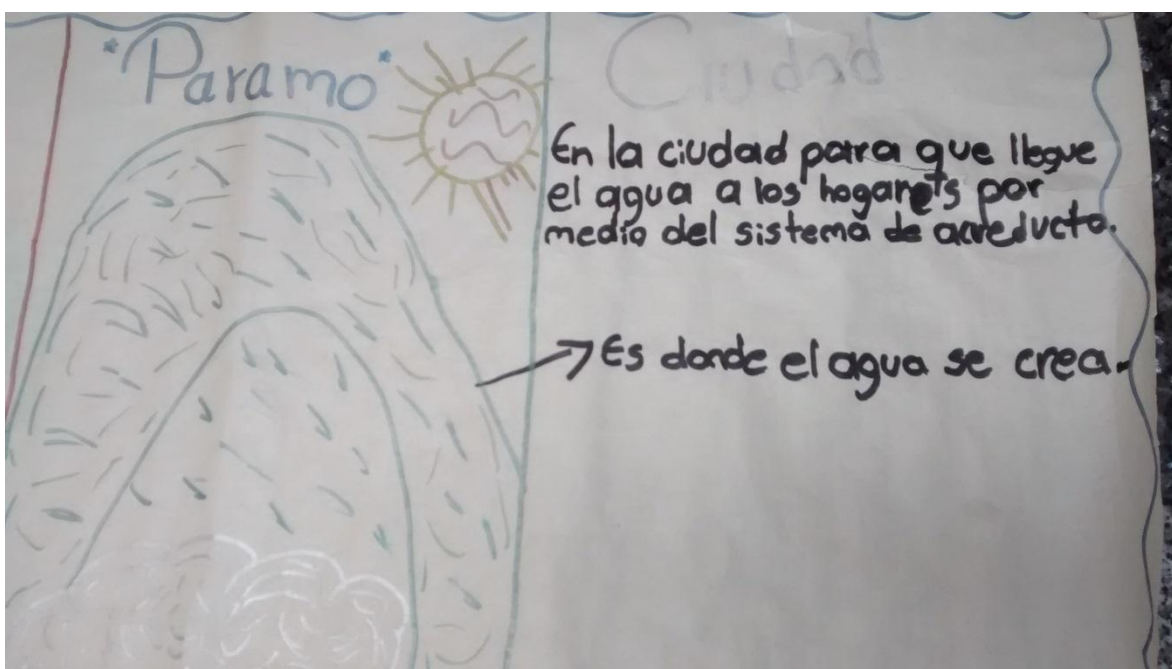 "Paramo"
Ciudad
En la ciudad para que llegue
el agua a los hogares por
medio del sistema de acueducto.
Es donde el agua se crea.